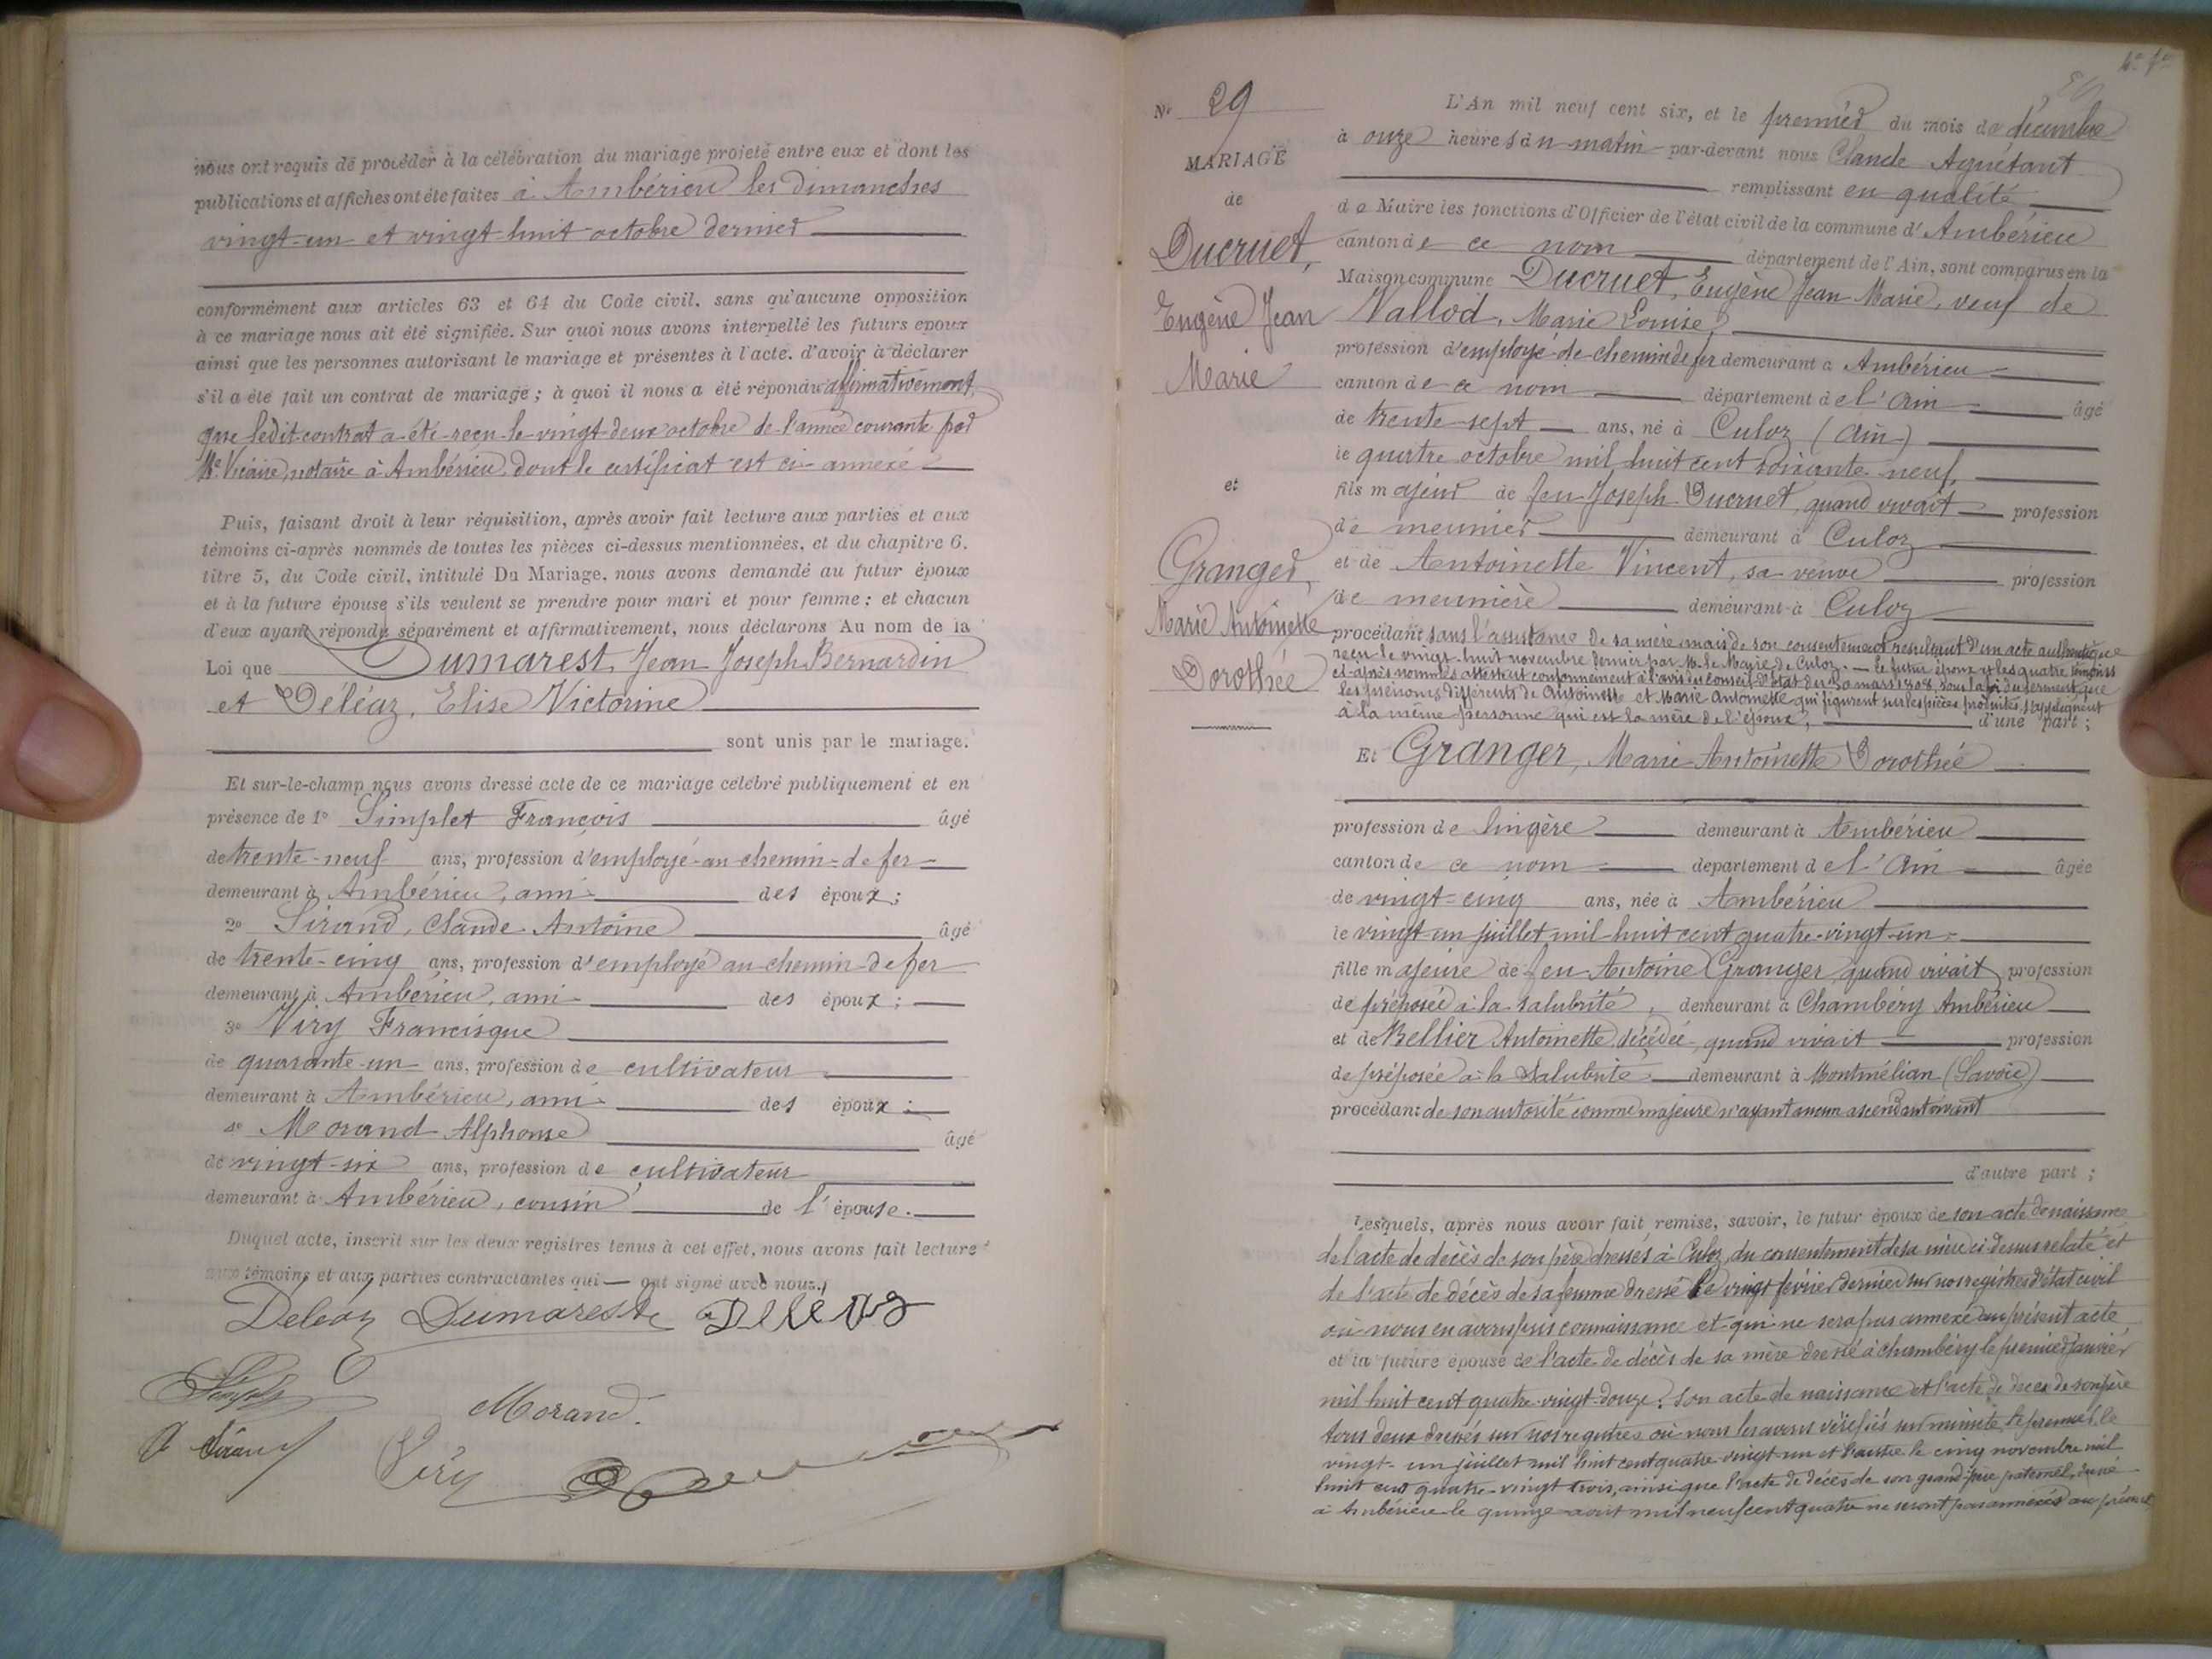 nous ont requis de procéder à la célébration du mariage projeté entre eux et dont les
publications et affiches ont été faites à Ambérieu les dimanches
vingt-un et vingt-huit octobre dernier
conformément aux articles 63 et 64 du Code civil, sans qu'aucune opposition
à ce mariage nous ait été signifiée. Sur quoi nous avons interpellé les futurs époux
ainsi que les personnes autorisant le mariage et présentes à l'acte, d'avoir à déclarer
s'il a été fait un contrat de mariage ; à quoi il nous a été répondu affirmativement,
que ledit contrat a été reçu le vingt deux octobre de l'année courante par
Me Vicaire, notaire à Ambérieu, dont le certificat est ci-annexé
Puis, faisant droit à leur réquisition, après avoir fait lecture aux parties et aux
témoins ci-après nommés de toutes les pièces ci-dessus mentionnées, et du chapitre 6,
titre 5, du Code civil, intitulé Du Mariage, nous avons demandé au futur époux
et à la future épouse s'ils veulent se prendre pour mari et pour femme ; et chacun
d'eux ayant répondu séparément et affirmativement, nous déclarons Au nom de la
Loi que Dumarest, Jean Joseph Bernardin
et Déléaz, Elise Victorine
sont unis par le mariage.
Et sur-le-champ nous avons dressé acte de ce mariage célébré publiquement et en
présence de 1° Simplet François âgé
de trente-neuf ans, profession d'employé au chemin-de fer
demeurant à Ambérieu, ami des époux ;
2° Sirand, Claude Antoine âgé
de trente-cinq ans, profession d'employé au chemin-de fer
demeurant à Ambérieu, ami des époux ;
3° Viry Francisque
de quarante-un ans, profession de cultivateur
demeurant à Ambérieu, ami des époux ;
4° Morand Alphonse âgé
de vingt-six ans, profession de cultivateur
demeurant à Ambérieu, cousin de l'épouse.
Duquel acte, inscrit sur les deux registres tenus à cet effet, nous avons fait lecture
aux témoins et aux parties contractantes qui ont signé avec nous.
Déléaz Dumarest
Morand
Sirand Viry
N° 29
MARIAGE
de
Ducruet,
Eugène Jean
Marie
et
Granger,
Marie Antoinette
Dorothée
L'An mil neuf cent six, et le premier du mois de décembre
à onze heures du matin par-devant nous Claude Aguétant
remplissant en qualité
de Maire les fonctions d'Officier de l'état civil de la commune d'Ambérieu
canton de ce nom département de l'Ain, sont comparus en la
Maison commune Ducruet, Eugène Jean Marie, veuf de
Vallod, Marie Louise,
profession d'employé de chemin de fer demeurant à Ambérieu
canton de ce nom département de l'Ain âgé
de trente-sept ans, né à Culoz (Ain)
le quatre octobre mil huit cent soixante neuf,
fils majeur de feu Joseph Ducruet, quand vivait profession
de meunier demeurant à Culoz
et de Antoinette Vincent, sa veuve profession
de meunière demeurant à Culoz
procédant sans l'assistance de sa mère mais de son consentement résultant d'un acte authentique
reçu le vingt-huit novembre dernier par M. le Maire de Culoz. — Le futur époux et les quatre témoins
ci-après nommés attestent conformément à l'avis du conseil d'état du 30 mars 1808, sous la foi du serment que
les prénoms différents de Antoinette et Marie Antoinette qui figurent sur les pièces produites s'appliquent
à la même personne qui est la mère de l'époux, d'une part ;
Et Granger, Marie Antoinette Dorothée
profession de lingère demeurant à Ambérieu
canton de ce nom département de l'Ain âgée
de vingt-cinq ans, née à Ambérieu
le vingt-un juillet mil-huit cent quatre-vingt-un
fille majeure de feu Antoine Granger quand vivait profession
de préposé à la salubrité, demeurant à Chambéry Ambérieu
et de Bellier Antoinette, décédée, quand vivait profession
de préposée à la salubrité, demeurant à Montmélian (Savoie)
procédant de son autorité comme majeure n'ayant aucun ascendant vivant
d'autre part ;
Lesquels, après nous avoir fait remise, savoir, le futur époux de son acte de naissance
de l'acte de décès de son père dressés à Culoz, du consentement de sa mère ci-dessus relaté et
de l'acte de décès de sa femme dressé le vingt février dernier sur nos registres d'état civil
où nous en avons pris connaissance et qui ne sera pas annexé au présent acte
et la future épouse de l'acte de décès de sa mère dressé à Chambéry le premier janvier
mil huit cent quatre-vingt-douze, son acte de naissance et l'acte de décès de son père
tous deux dressés sur nos registres où nous les avons vérifiés sur minute, le premier, le
vingt-un juillet mil huit cent quatre-vingt-un et l'autre le cinq novembre mil
huit cent quatre-vingt trois, ainsi que l'acte de décès de son grand-père paternel, dressé
à Ambérieu le quinze août mil neuf cent quatre ne seront pas annexés au présent